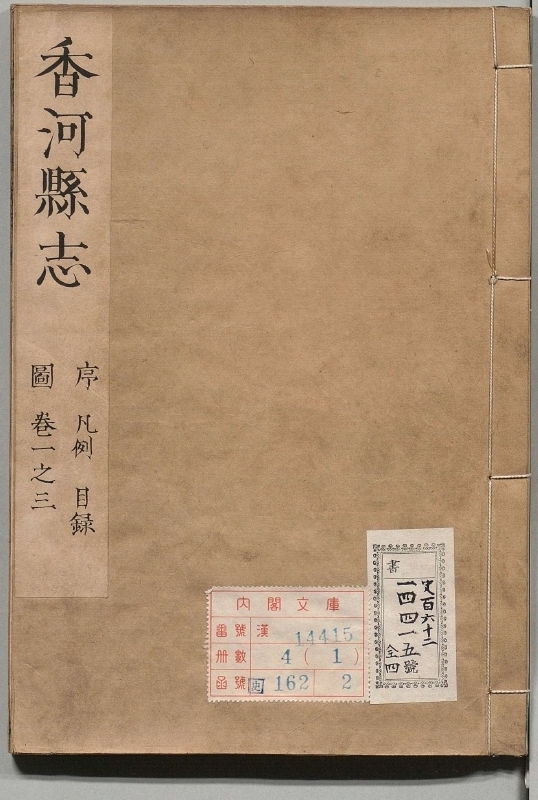 香河縣志
序 凡例 目録
圖 卷一之三
内閣文庫
番號 漢 14415
冊數 4(1)
函號 史 162 2
書
史百六十二
一四四一五號
全四